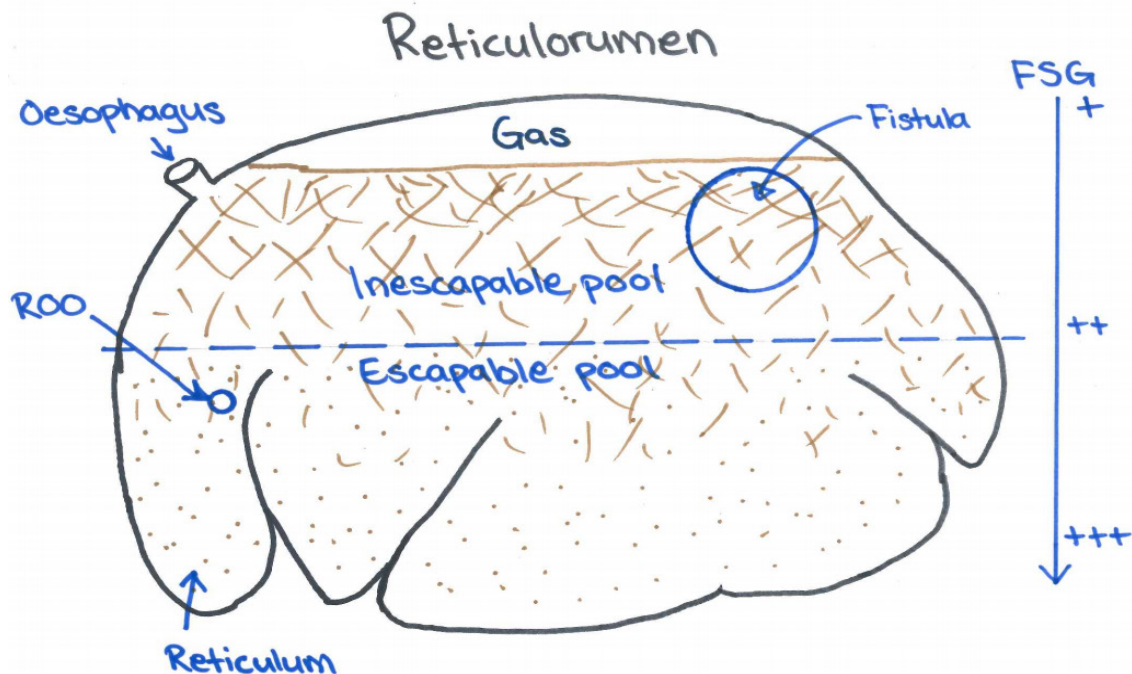 Reticulorumen
FSG
Oesophagus
+
Gas
Fistula
Inescapable pool
ROO
++
Escapable pool
+++
Reticulum